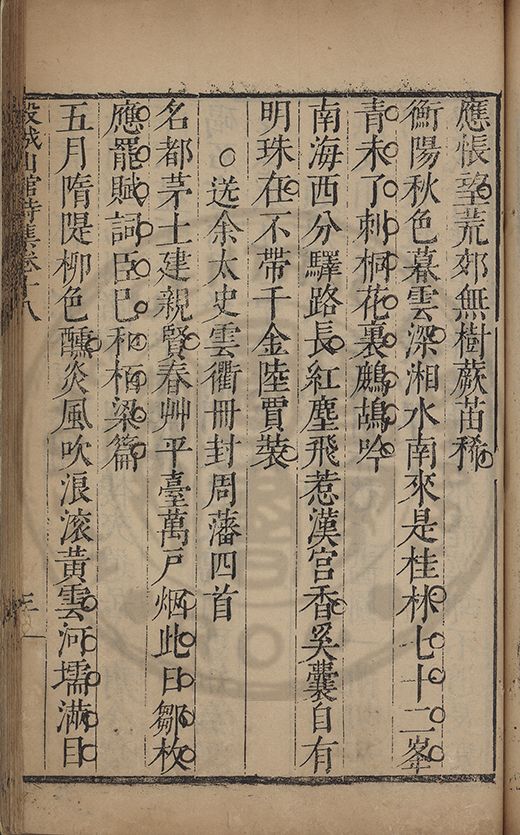 應悵望荒郊無樹蕨苗稀
衡陽秋色暮雲深湘水南來是桂林七十二峯
青未了刺桐花裏鷓鴣吟
南海西分驛路長紅塵飛惹漢宫香奚囊自有
明珠在不帶千金陸賈裝
送余太史雲衢冊封周藩四首
名都茅土建親賢春艸平臺萬戸烟此日鄒枚
應罷賦詞臣已和栢梁篇
五月隋隄柳色醺炎風吹浪滚黃雲河壖滿目
穀城山館詩集卷十八
三